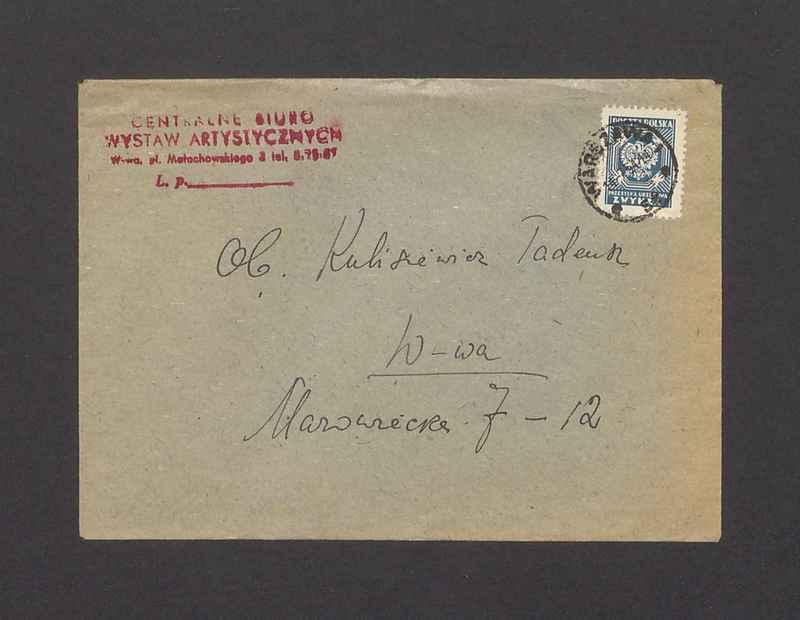 CENTRALNE BIURO
WYSTAW ARTYSTYCZNYCH
W-wa, pl. Małachowskiego 3 tel. 8.75-87
L. p.
POCZTA POLSKA
WARSZAWA
PRZESYŁKA URZĘDOWA
ZWYKŁA
Ob. Kulisiewicz Tadeusz
W-wa
Mazowiecka 7 - 12